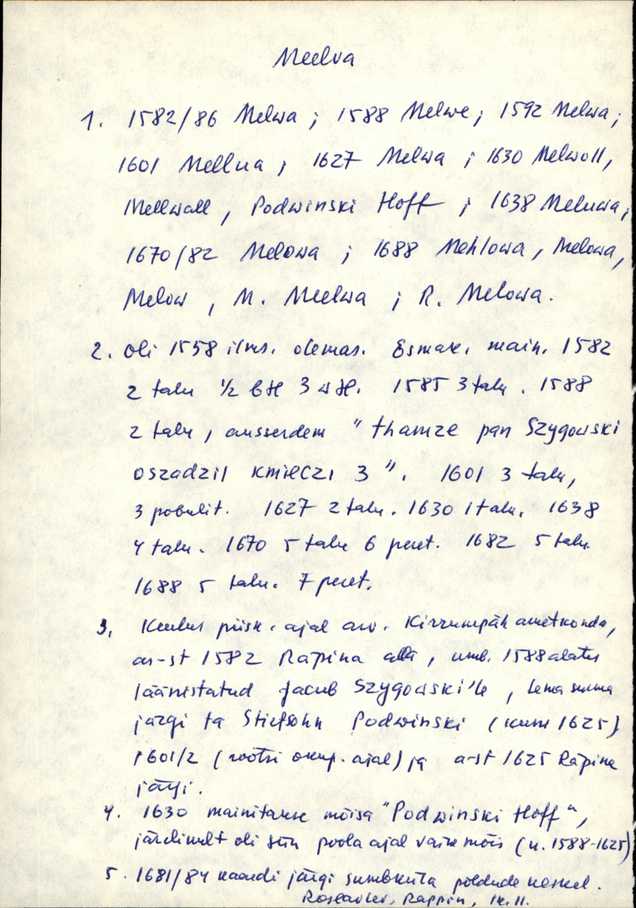 Meelva
1. 1582/86 Melwa ; 1588 Melwe ; 1592 Melwa ;
1601 Mellua ; 1627 Melwa ; 1630 Melwoll,
Mellwall , Podwinski Hoff ; 1638 Meluwa ;
1670/82 Melowa ; 1688 Mehlowa , Melowa,
Melow , M. Meelwa ; R. Melowa.
2. Oli 1558 ilms. olemas. Esmak. main. 1582
2 talu 1/2 3 1585 3 talu . 1588
2 talu , ausserdem " thamze pan Szygowski
oszadzil kmieczi 3 " . 1601 3 talu,
3 pobulit. 1627 2 talu . 1630 1 talu. 1638
4 talu . 1670 5 talu 6 peret. 1682 5 talu
1688 5 talu. 7 peret.
3. Kuulus piisk. ajal arv. Kirrumpäh ametkonda,
as-st 1582 Räpina alla , umb. 1588 alates
läänistatud Jacub Szygowski'le , tema surma
järgi ta Stiefsohn Podwinski ( kuni 1625)
1601/2 ( rootsi okup. ajal) ja a-st 1625 Räpina
järgi.
4. 1630 mainitakse mõisa "Podwinski Hoff",
järelikult oli siin poola ajal väike mõis (u. 1588-1625)
5. 1681/84 kaardi järgi sumbküla põldude keskel.
Roslavlev, Rappin, lk. 11.